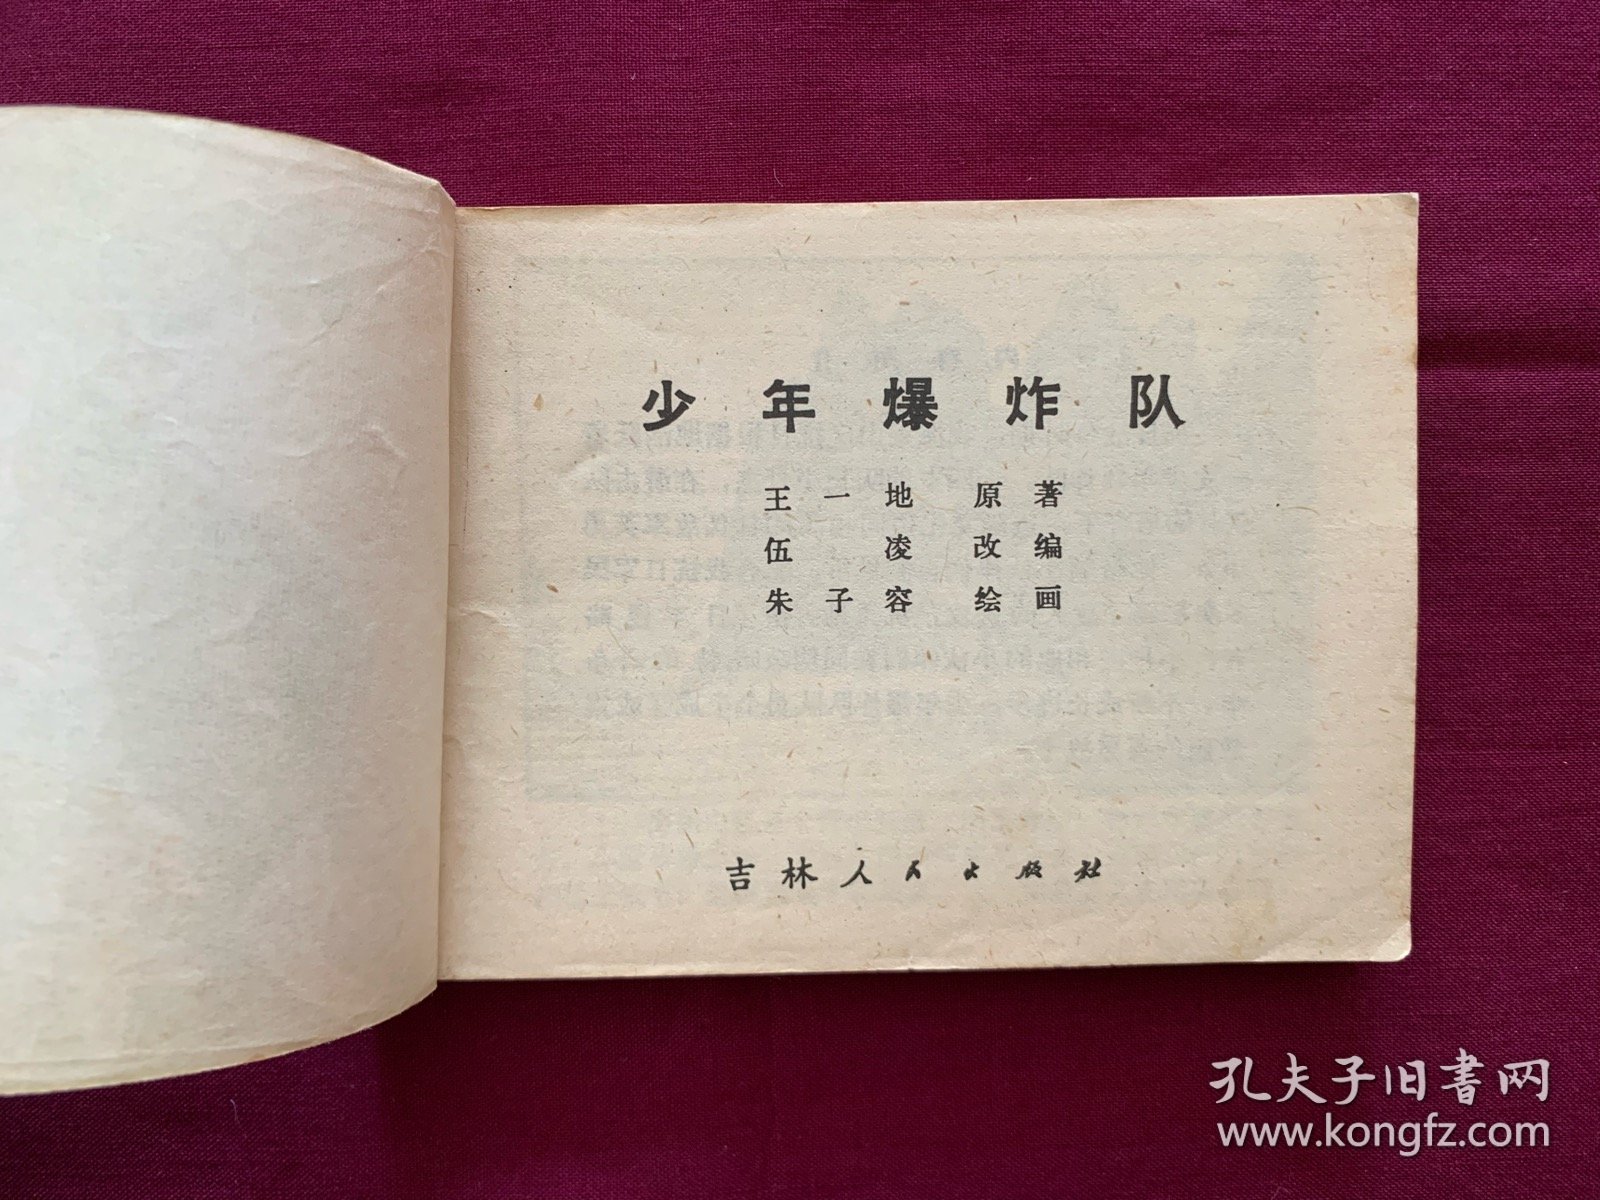 少年爆炸队
王一地 原著
伍凌 改编
朱子容 绘画
吉林人民出版社
孔夫子旧书网
www.kongfz.com